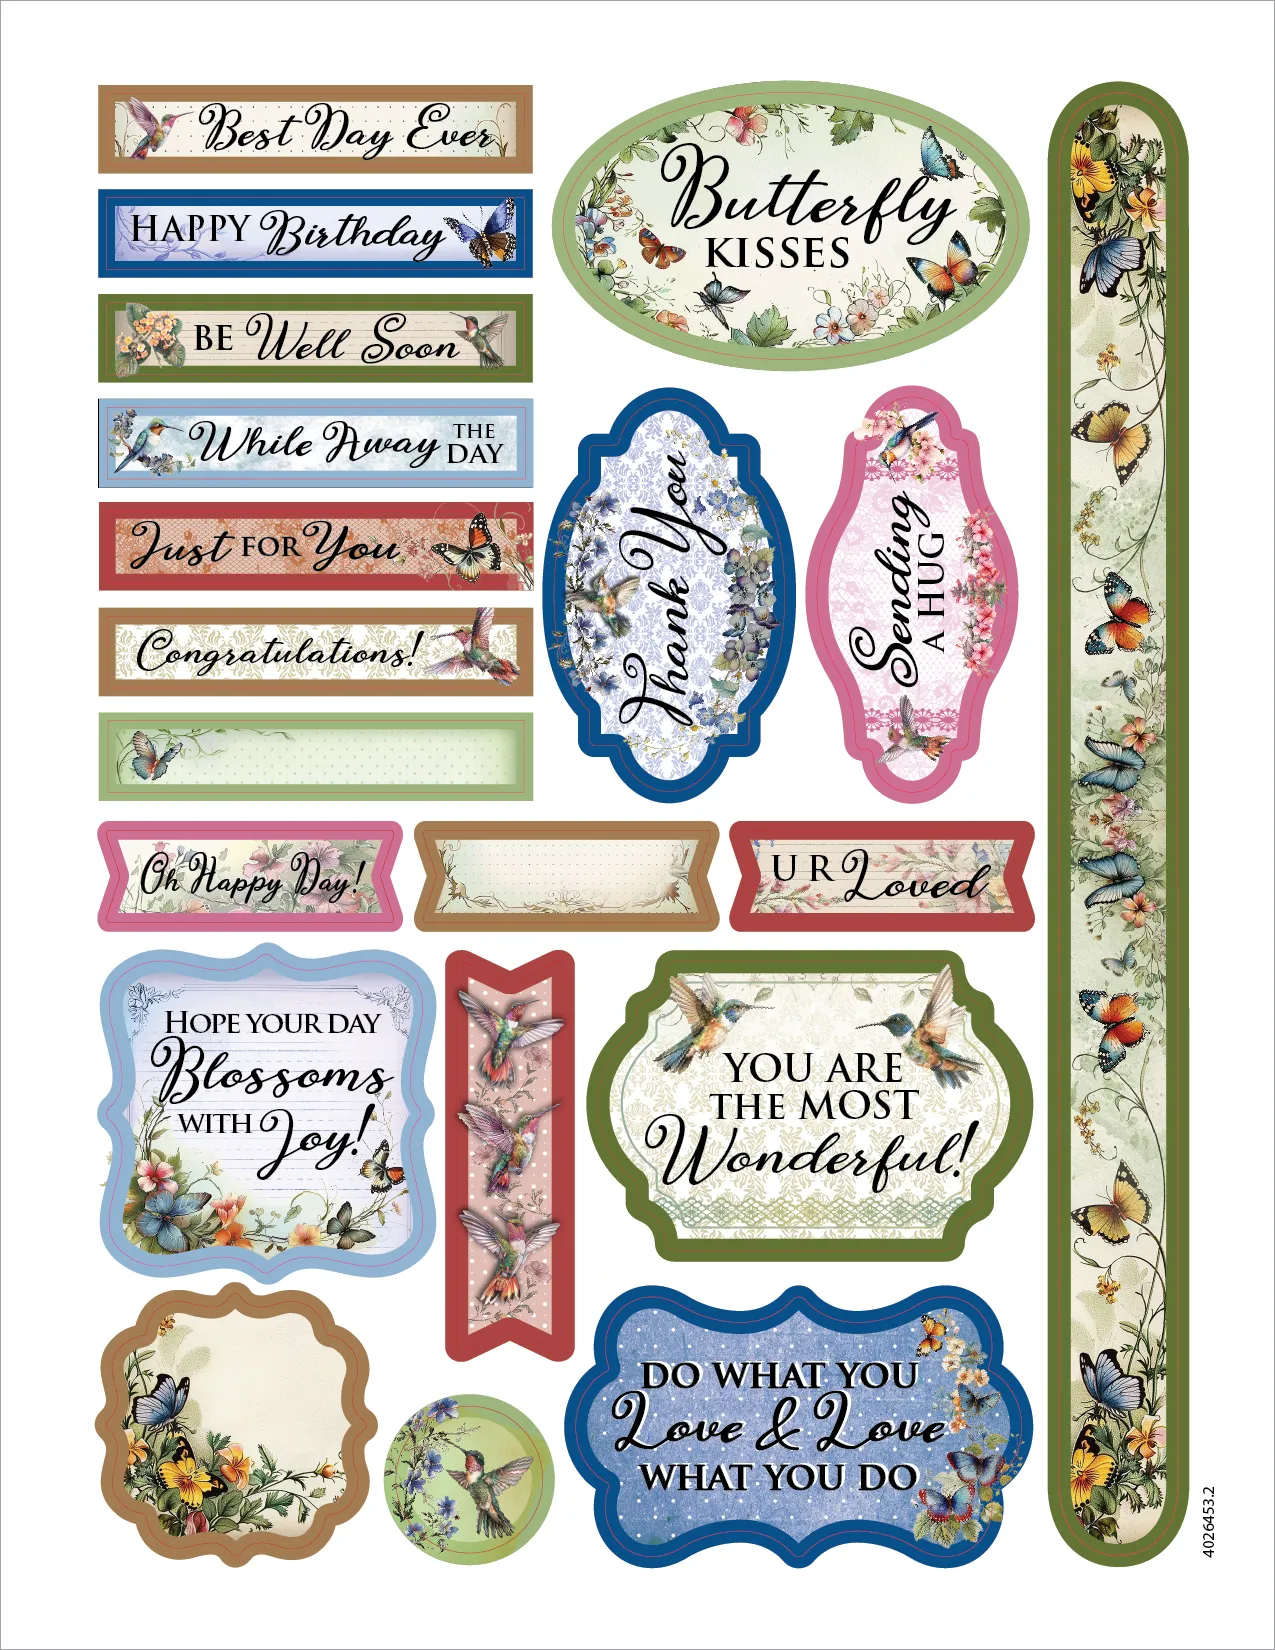 Best Day Ever
HAPPY Birthday
BE Well Soon
While Away THE DAY
Just FOR You
Congratulations!
Butterfly
KISSES
Thank You
Sending
A HUG
Oh Happy Day!
U R Loved
HOPE YOUR DAY
Blossoms
WITH Joy!
YOU ARE
THE MOST
Wonderful!
DO WHAT YOU
Love & Love
WHAT YOU DO
4026453.2